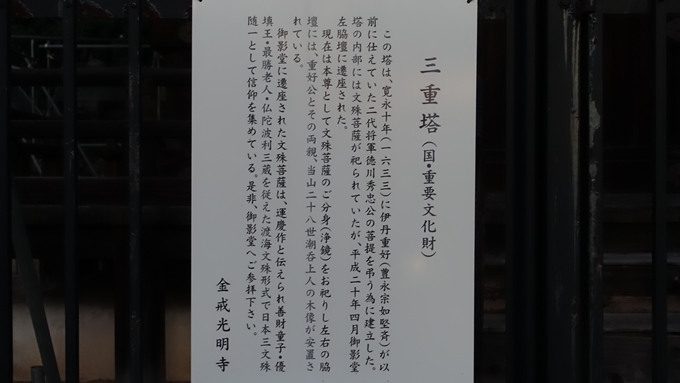 三重塔(国・重要文化財)
この塔は、寛永十年(一六三三)に伊丹重好(豊永宗如堅斉)が以
前に仕えていた二代将軍徳川秀忠公の菩提を弔う為に建立した。
塔の内部には文殊菩薩が祀られていたが、平成二十年四月御影堂
左脇壇に遷座された。
現在は本尊として文殊菩薩のご分身(浄鏡)をお祀りし左右の脇
壇には、重好公とその両親、当山二十八世潮呑上人の木像が安置さ
れている。
御影堂に遷座された文殊菩薩は、運慶作と伝えられ善財童子・優
填王・最勝老人・仏陀波利三蔵を従えた渡海文殊形式で日本三文殊
随一として信仰を集めている。是非、御影堂へご参拝下さい。
金戒光明寺